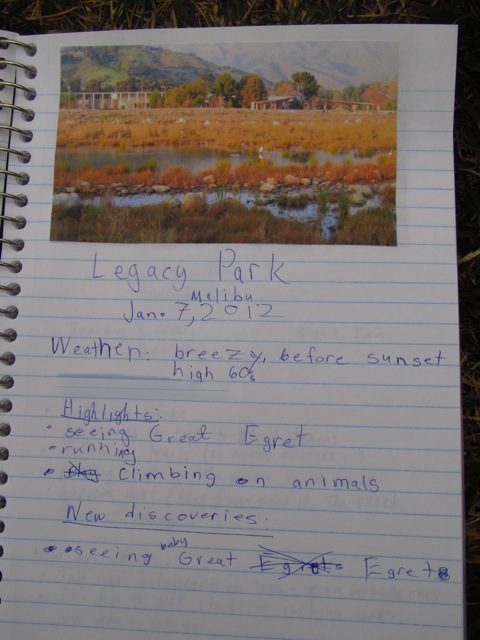 Legacy Park
Malibu
Jan. 7, 2012
Weather: breezy, before sunset
high 60s
Highlights:
• seeing Great Egret
• running
• Climbing on animals
New discoveries:
• seeing baby Great Egret